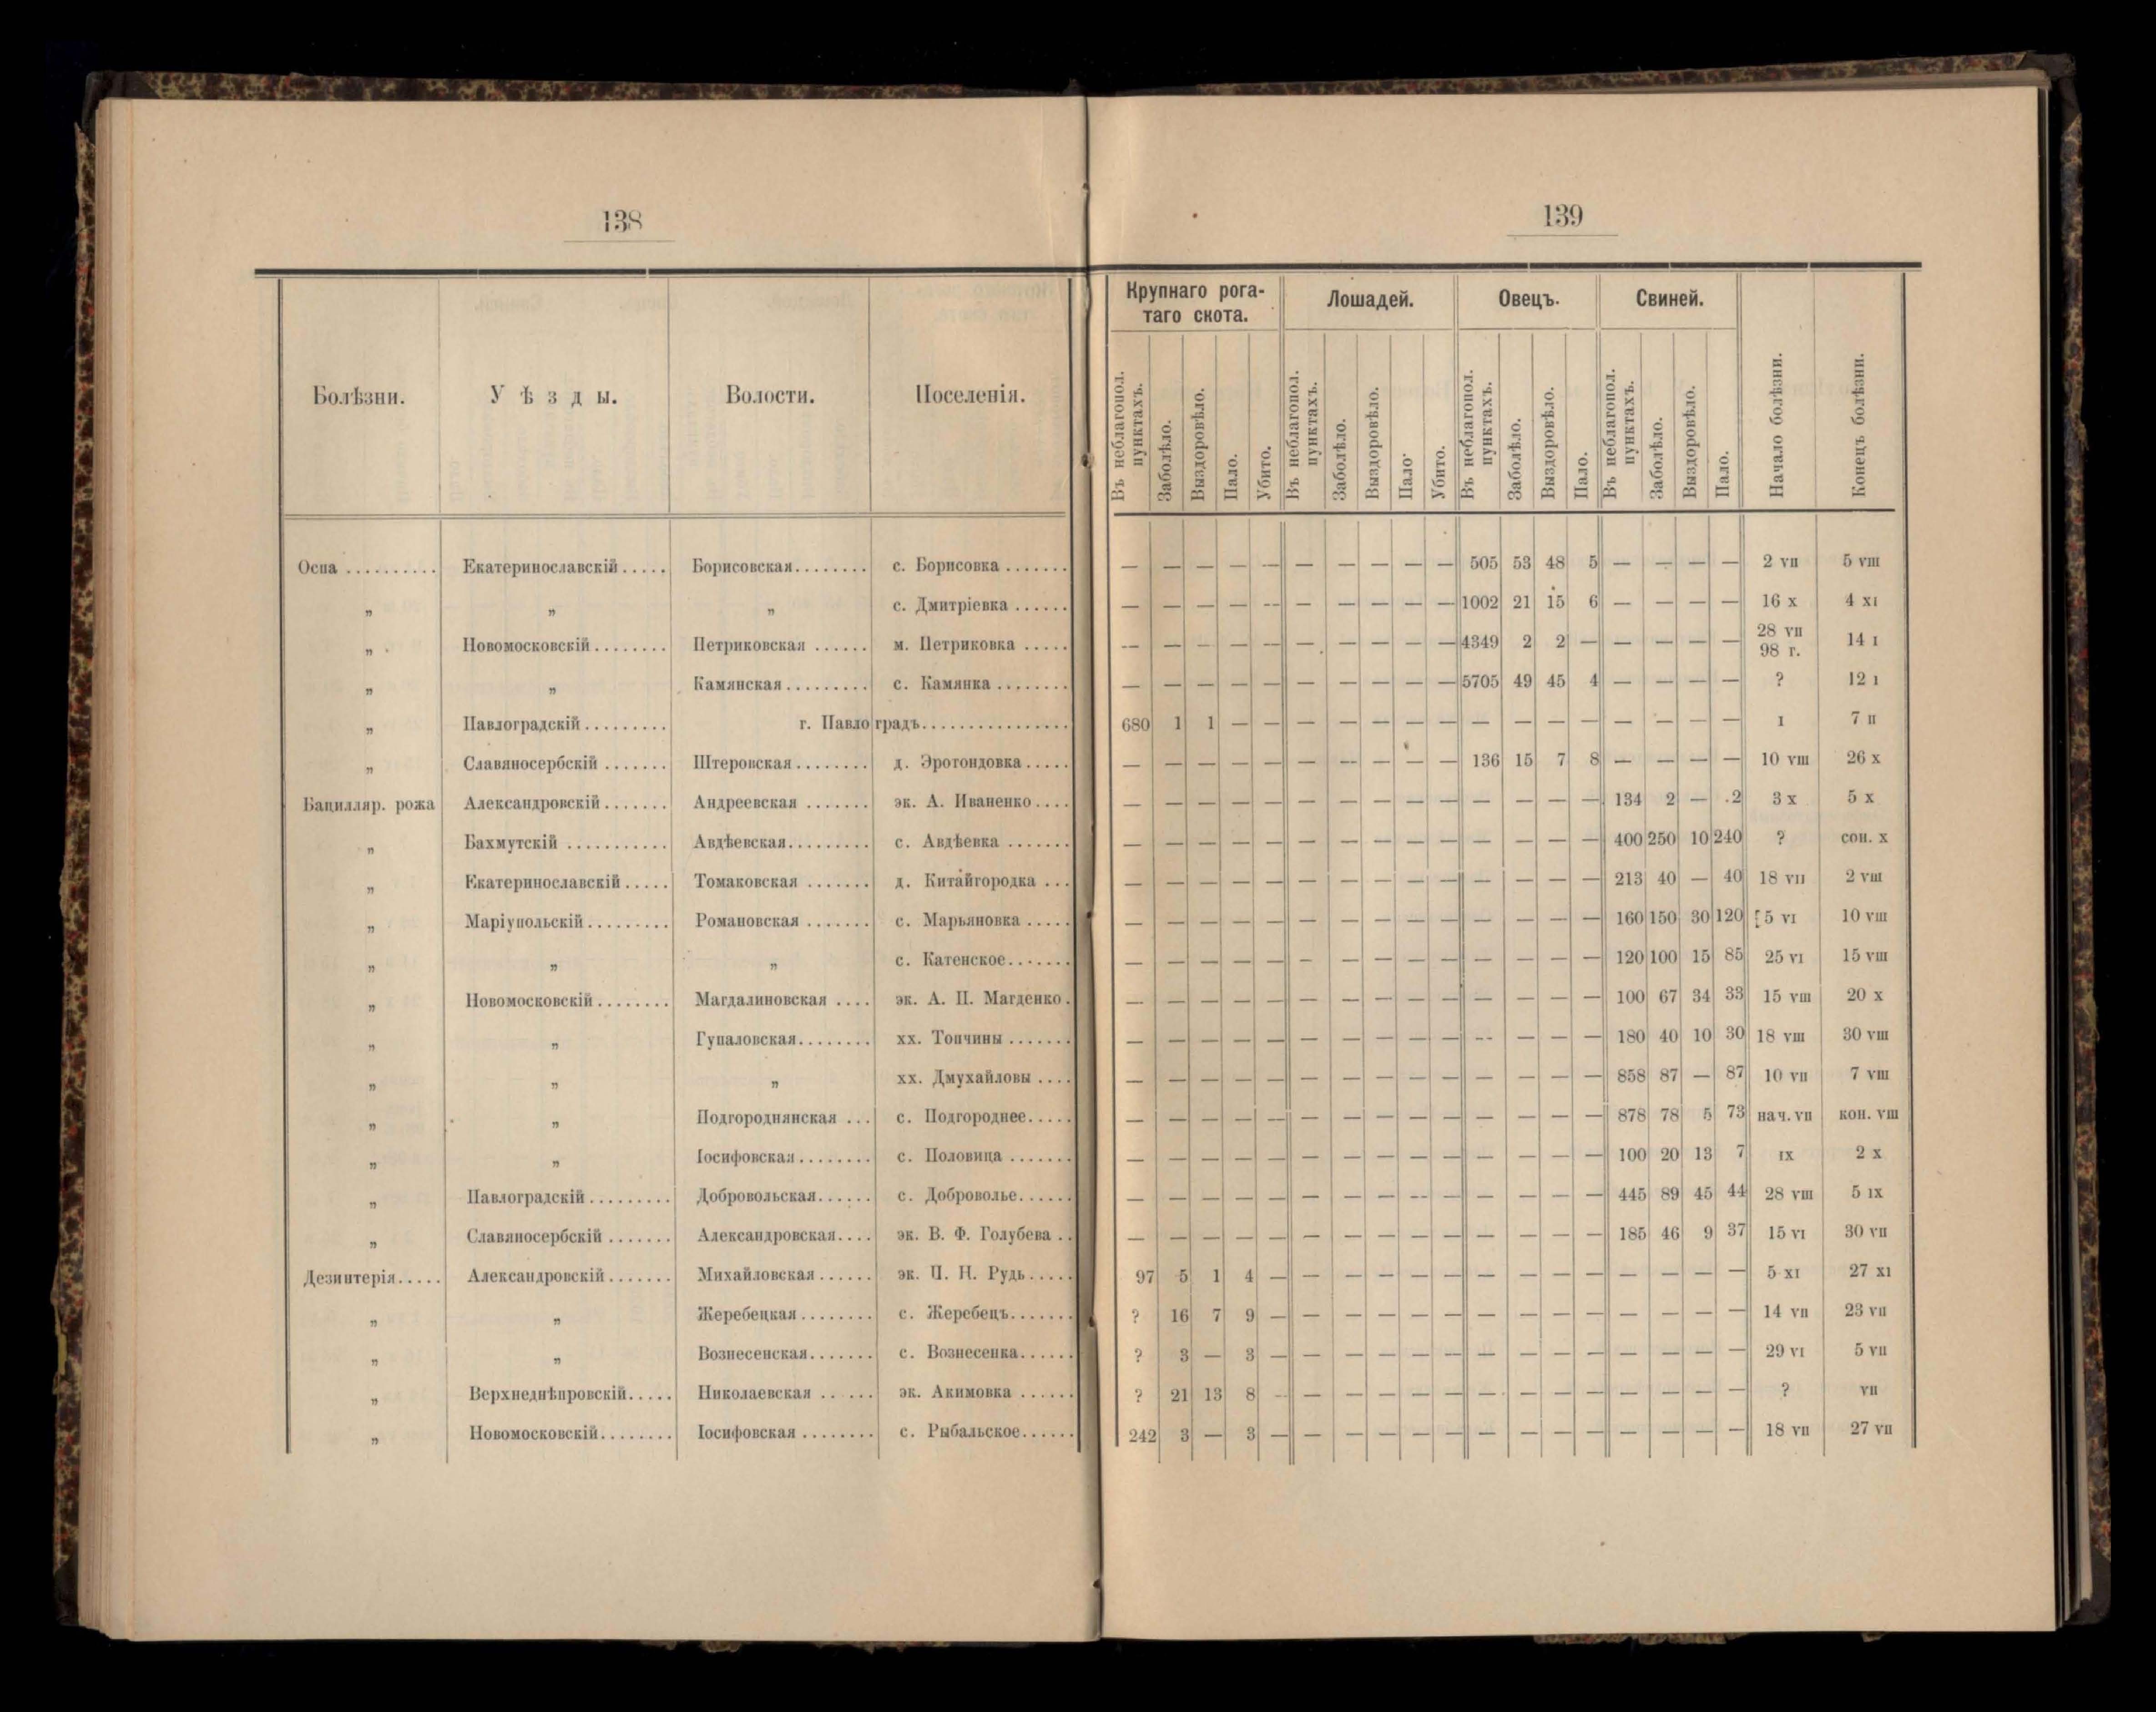 138
Болѣзни. Уѣзды. Волости. Поселенія.
Оспа .......... Екатеринославскій..... Борисовская........ с. Борисовка .......
„ „ „ с. Дмитріевка ......
„ Новомосковскій........ Петриковская ...... м. Петриковка .....
„ „ Камянская......... с. Камянка ........
„ Павлоградскій......... г. Павлоградъ................
„ Славяносербскій ....... Штеровская........ д. Эрогондовка.....
Бацилляр. рожа Александровскій....... Андреевская ....... эк. А. Иваненко....
„ Бахмутскій ........... Авдѣевская......... с. Авдѣевка .......
„ Екатеринославскій..... Томаковская ....... д. Китайгородка ...
„ Маріупольскій......... Романовская ....... с. Марьяновка .....
„ „ „ с. Катенское.......
„ Новомосковскій........ Магдалиновская .... эк. А. П. Магденко.
„ „ Гупаловская........ хх. Топчины .......
„ „ „ хх. Дмухайловы ....
„ „ Подгороднянская ... с. Подгороднее.....
„ „ Іосифовская........ с. Половица .......
„ Павлоградскій......... Добровольская...... с. Доброволье......
„ Славяносербскій ....... Александровская.... эк. В. Ф. Голубева ..
Дезинтерія..... Александровскій....... Михайловская...... эк. П. Н. Рудь.....
„ „ Жеребецкая........ с. Жеребецъ.......
„ „ Вознесенская....... с. Вознесенка......
„ Верхнеднѣпровскій..... Николаевская ...... эк. Акимовка ......
„ Новомосковскій........ Іосифовская ........ с. Рыбальское......
139
Крупнаго рога- Лошадей. Овецъ. Свиней.
таго скота.
Въ неблагопол. пунктахъ. Заболѣло. Выздоровѣло. Пало. Убито. Въ неблагопол. пунктахъ. Заболѣло. Выздоровѣло. Пало. Убито. Въ неблагопол. пунктахъ. Заболѣло. Выздоровѣло. Пало. Въ неблагопол. пунктахъ. Заболѣло. Выздоровѣло. Пало. Начало болѣзни. Конецъ болѣзни.
— — — — — — — — — — 505 53 48 5 — — — — 2 VII 5 VIII
— — — — — — — — — — 1002 21 15 6 — — — — 16 X 4 XI
— — — — — — — — — — 4349 2 2 — — — — — 28 VII 98 г. 14 I
— — — — — — — — — — 5705 49 45 4 — — — — ? 12 I
680 1 1 — — — — — — — — — — — — — — — I 7 II
— — — — — — — — — — 136 15 7 8 — — — — 10 VIII 26 X
— — — — — — — — — — — — — — 134 2 — 2 3 X 5 X
— — — — — — — — — — — — — — 400 250 10 240 ? сон. X
— — — — — — — — — — — — — — 213 40 — 40 18 VII 2 VIII
— — — — — — — — — — — — — — 160 150 30 120 [5 VI 10 VIII
— — — — — — — — — — — — — — 120 100 15 85 25 VI 15 VIII
— — — — — — — — — — — — — — 100 67 34 33 15 VIII 20 X
— — — — — — — — — — — — — — 180 40 10 30 18 VIII 30 VIII
— — — — — — — — — — — — — — 858 87 — 87 10 VII 7 VIII
— — — — — — — — — — — — — — 878 78 5 73 нач. VII кон. VIII
— — — — — — — — — — — — — — 100 20 13 7 IX 2 X
— — — — — — — — — — — — — — 445 89 45 44 28 VIII 5 IX
— — — — — — — — — — — — — — 185 46 9 37 15 VI 30 VII
97 5 1 4 — — — — — — — — — — — — — — 5 XI 27 XI
? 16 7 9 — — — — — — — — — — — — — — 14 VII 23 VII
? 3 — 3 — — — — — — — — — — — — — — 29 VI 5 VII
? 21 13 8 — — — — — — — — — — — — — — ? VII
242 3 — 3 — — — — — — — — — — — — — — 18 VII 27 VII